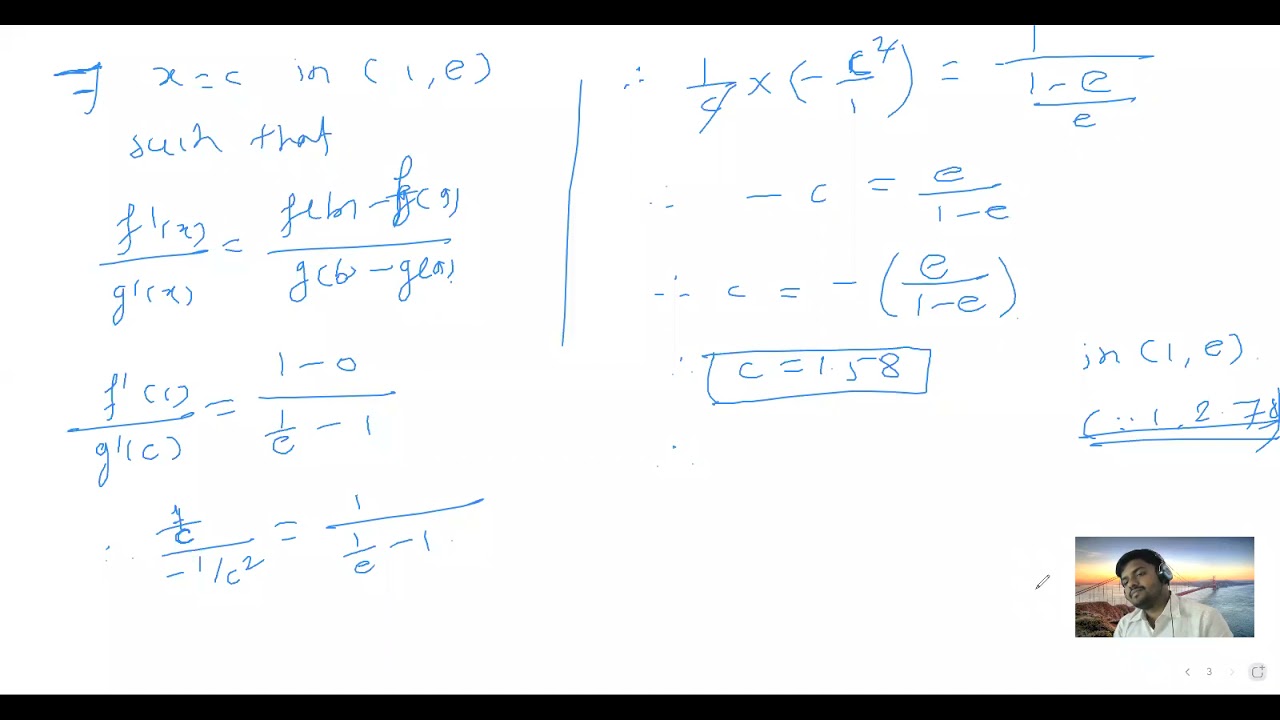 ⇒ x = c in (1, e)
such that
f'(x)/g'(x) = f(b) - f(a)/g(b) - g(a)
f'(c)/g'(c) = 1 - 0/(1/e - 1)
∴ (1/c)/(-1/c²) = 1/(1/e - 1)
∴ 1/c × (- c²/1) = 1/((1-e)/e)
∴ - c = e/(1-e)
∴ c = - (e/(1-e))
∴ c = 1.58
in (1, e)
(∵ 1, 2.78)
∴
3